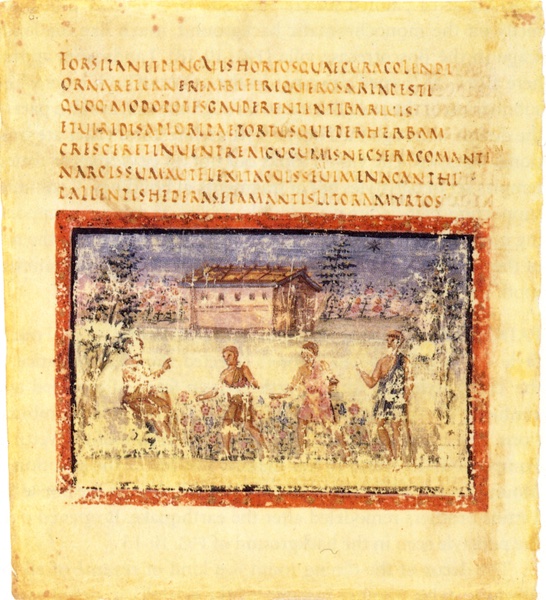 FORSITANETPINGVISHORTOSQVAECVRACOLENDI
ORNARETCANEREMBIFERIQVEROSARIAPESTI
QVOQ·MODOPOTISGAVDERENTINTIBARIVIS
ETVIRIDISAPIORIPAETORTVSQVEPERHERBAM
CRESCERETINVENTREMCVCVMISNECSERACOMANTEM
NARCISSVMAVTFLEXITACVISSEVIMENACANTHI
PALLENTISHEDERASETAMANTISLITORAMYRTOS